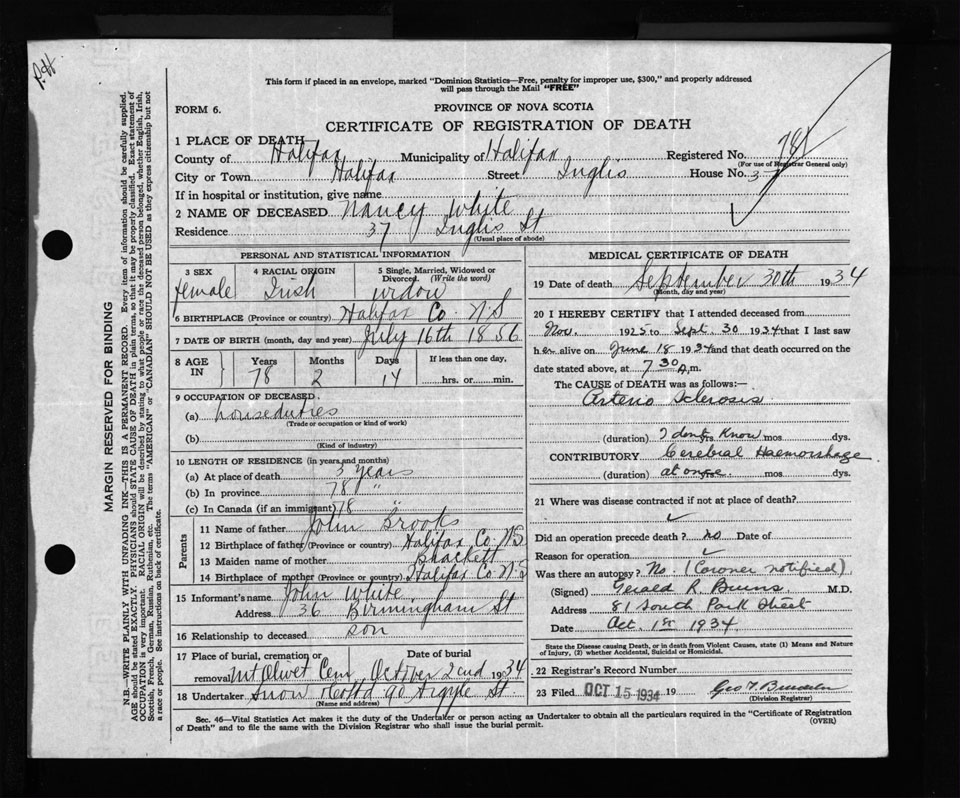 P.H
This form if placed in an envelope, marked "Dominion Statistics—Free, penalty for improper use, $300," and properly addressed
will pass through the Mail "FREE"
FORM 6.
PROVINCE OF NOVA SCOTIA
CERTIFICATE OF REGISTRATION OF DEATH
1 PLACE OF DEATH
County of Halifax Municipality of Halifax Registered No. 781
(For use of Registrar General only)
City or Town Halifax Street Inglis House No. 37
If in hospital or institution, give name
2 NAME OF DECEASED Nancy White
Residence 37 Inglis St
(Usual place of abode)
PERSONAL AND STATISTICAL INFORMATION
3 SEX female
4 RACIAL ORIGIN Irish
5 Single, Married, Widowed or Divorced (Write the word) widow
6 BIRTHPLACE (Province or country) Halifax Co. N.S
7 DATE OF BIRTH (month, day and year) July 16th 1856
8 AGE IN Years Months Days If less than one day,
78 2 14 hrs. or min.
9 OCCUPATION OF DECEASED
(a) houseduties
(Trade or occupation or kind of work)
(b)
(Kind of industry)
10 LENGTH OF RESIDENCE (in years and months)
(a) At place of death 3 years
(b) In province 78 "
(c) In Canada (if an immigrant) 78 "
Parents
11 Name of father John Brooks
12 Birthplace of father (Province or country) Halifax Co. NS
13 Maiden name of mother Brackett
14 Birthplace of mother (Province or country) Halifax Co N.S
15 Informant's name John White
Address 36 Birmingham St
16 Relationship to deceased son
17 Place of burial, cremation or removal Mt Olivet Cem
Date of burial October 2nd 1934
18 Undertaker Snow & Co Ltd 90 Argyle St
(Name and address)
MEDICAL CERTIFICATE OF DEATH
19 Date of death September 30th 1934
(Month, day and year)
20 I HEREBY CERTIFY that I attended deceased from
Nov. 1925 to Sept. 30 1934 that I last saw
her alive on June 18 1934 and that death occurred on the
date stated above, at 7 30 A.m.
The CAUSE OF DEATH was as follows:—
Arterio Sclerosis
(duration) I dont yrs. Know mos. dys.
CONTRIBUTORY Cerebral Haemorrhage
(duration) at once yrs. mos. dys.
21 Where was disease contracted if not at place of death?
Did an operation precede death? no Date of
Reason for operation
Was there an autopsy? No. (Coroner notified)
(Signed) Gerald R. Burns M.D.
Address 81 South Park Street
Date Oct. 1st 1934
State the Disease causing Death, or in death from Violent Causes, state (1) Means and Nature of Injury, (2) whether Accidental, Suicidal or Homicidal.
22 Registrar's Record Number
23 Filed OCT 15 1934 19
(Division Registrar)
Sec. 46—Vital Statistics Act makes it the duty of the Undertaker or person acting as Undertaker to obtain all the particulars required in the "Certificate of Registration
of Death" and to file the same with the Division Registrar who shall issue the burial permit.
(OVER)
MARGIN RESERVED FOR BINDING
N.B.—WRITE PLAINLY WITH UNFADING INK—THIS IS A PERMANENT RECORD. Every item of information should be carefully supplied.
AGE should be stated EXACTLY. PHYSICIANS should STATE CAUSE OF DEATH in plain terms, so that it may be properly classified. Exact statement of
OCCUPATION is very important. RACIAL ORIGIN will be described by stating to what people or race the deceased person belonged, whether English, Irish,
Scottish, French, German, Russian, Ruthenian, etc. The terms "AMERICAN" or "CANADIAN" SHOULD NOT BE USED as they express citizenship but not
a race or people. See instructions on back of certificate.